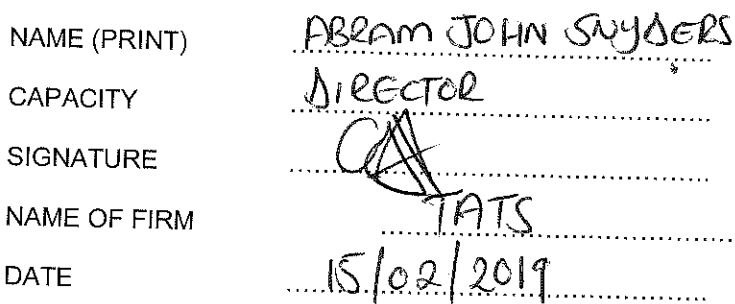 NAME (PRINT) ABRAM JOHN SNYDERS
CAPACITY DIRECTOR
SIGNATURE
NAME OF FIRM TATS
DATE 15/02/2019